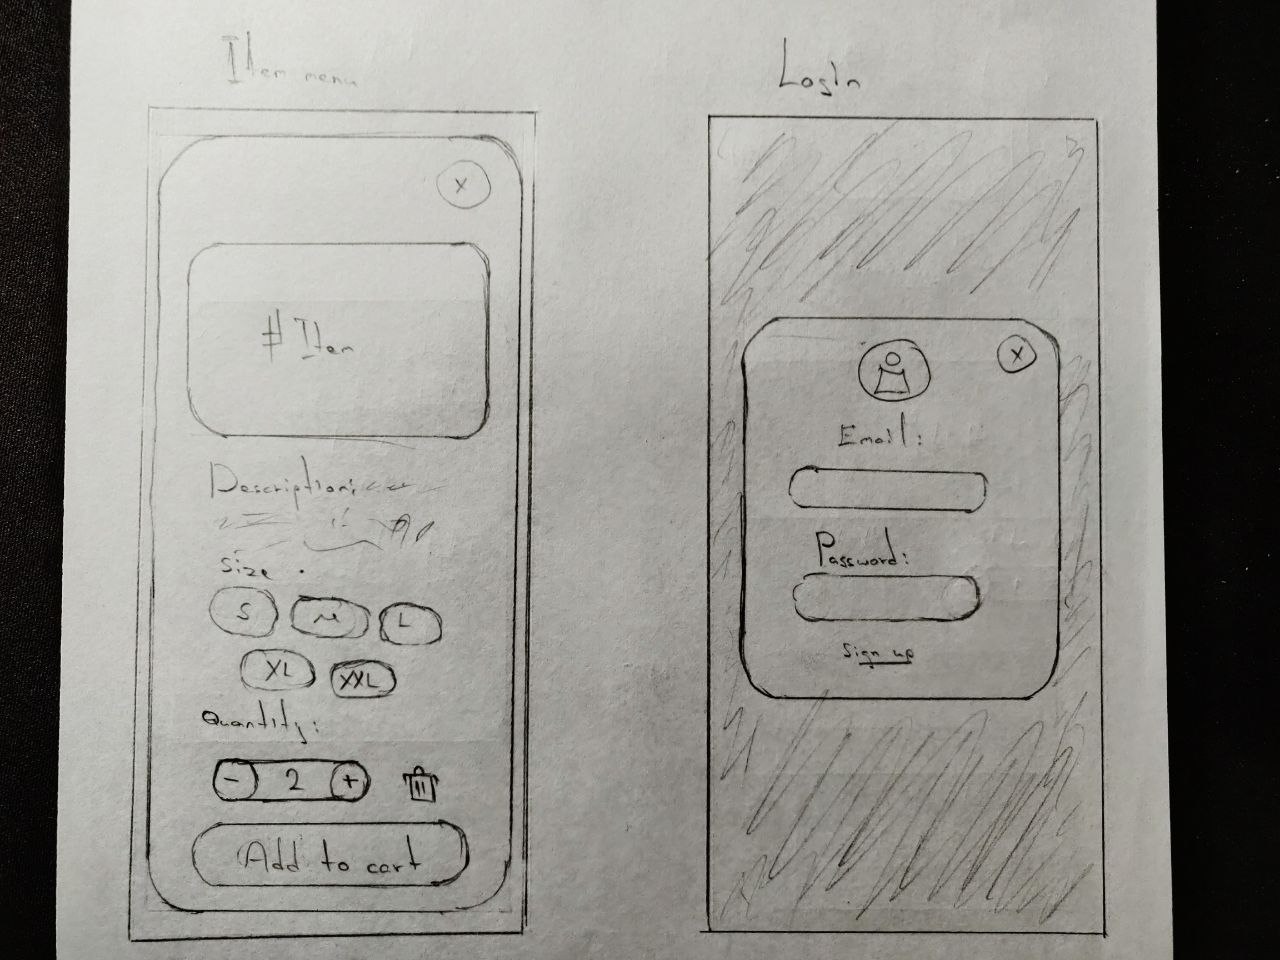 Item menu
X
# Item
Description:
Size
S M L
XL XXL
Quantity:
- 2 +
Add to cart
Login
X
Email:
Password:
Sign up